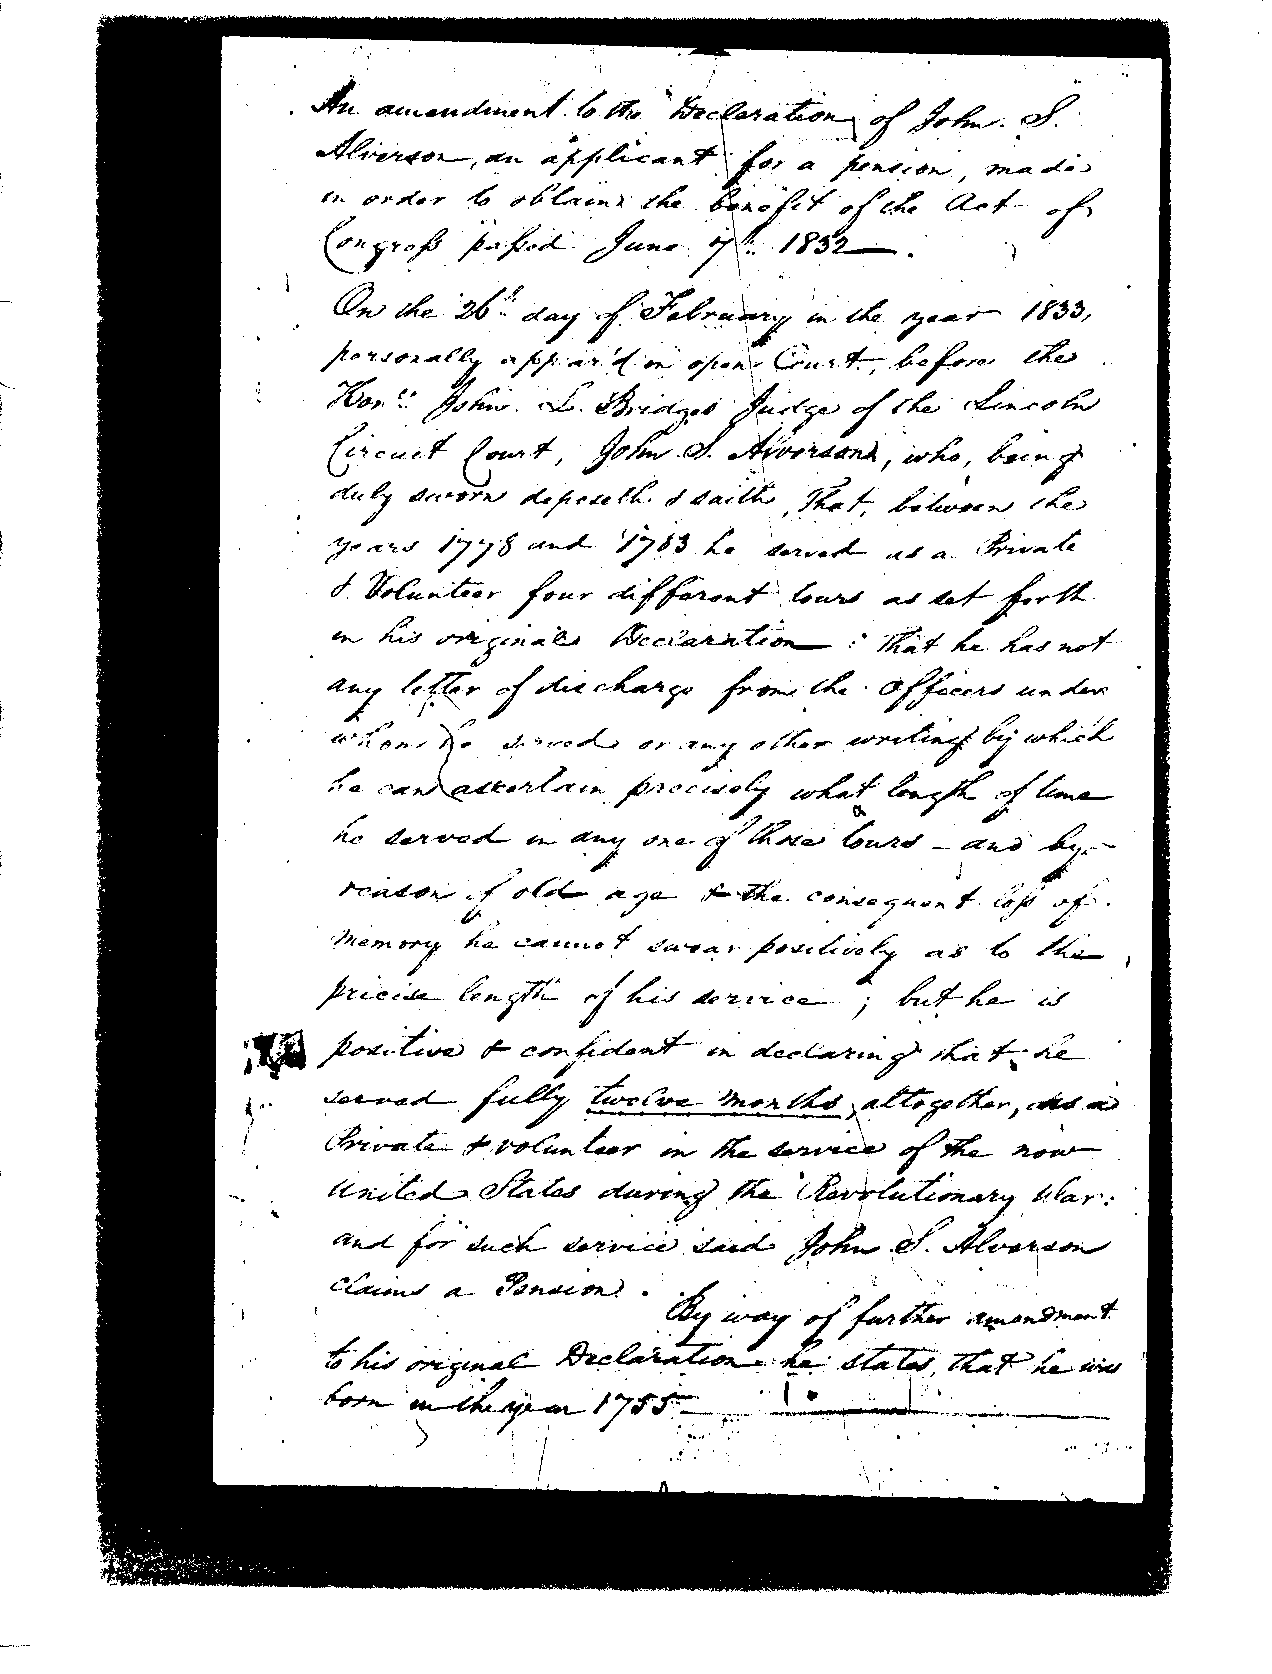 An amendment to the Declaration of John. S.
Alverson, an applicant for a pension, made
in order to obtain the benefit of the Act of
Congress passed June 7th. 1832 —.
On the 26th day of February in the year 1833,
personally appear'd in open Court, before the
Honl. John. L. Bridges Judge of the Lincoln
Circuit Court, John S. Alverson, who, being
duly sworn deposeth & saith, That, between the
years 1778 and 1783 he served as a Private
& Volunteer four different tours as set forth
in his original Declaration : That he has not
any letter of discharge from the officers under
whom he served or any other writing by which
he can ascertain precisely what length of time
he served in any one of those tours – and by
reason of old age & the consequent loss of
memory he cannot swear positively as to the
precise length of his service ; but he is
positive & confident in declaring that he
served fully twelve months, altogether, as a
Private & volunteer in the service of the now
United States during the Revolutionary War:
and for such service said John S. Alverson
claims a Pension.
By way of further amendment
to his original Declaration he states, that he was
born in the year 1755 —